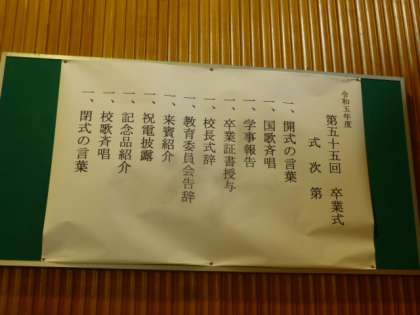 令和五年度
第五十五回 卒業式
式次第
一、開式の言葉
一、国歌斉唱
一、学事報告
一、卒業証書授与
一、校長式辞
一、教育委員会告辞
一、来賓紹介
一、祝電披露
一、記念品紹介
一、校歌斉唱
一、閉式の言葉